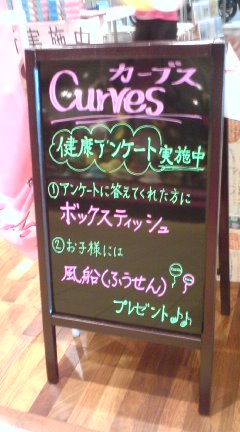 実施中
カーブス
Curves
健康アンケート実施中
①アンケートに答えてくれた方に
ボックスティッシュ
②お子様には
風船(ふうせん)
プレゼント♪♪